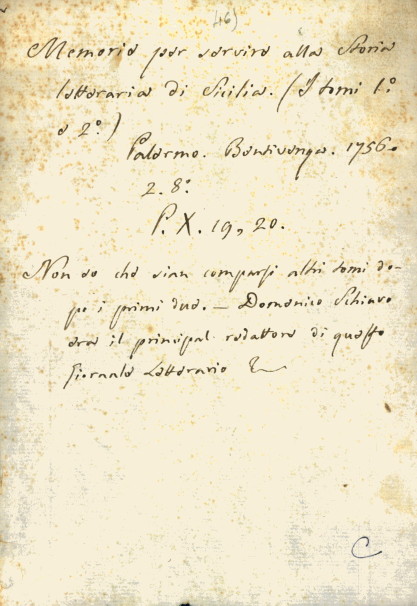 46)
Memorie per servire alla Storia
letteraria di Sicilia. (I tomi 1.º
e 2.º)
Palermo. Bentivenga. 1756.
2. 8.º
P. X. 19, 20.
Non so che sian comparsi altri tomi do-
po i primi due. — Domenico Schiavo
era il principal redattore di questo
Giornale Letterario
C